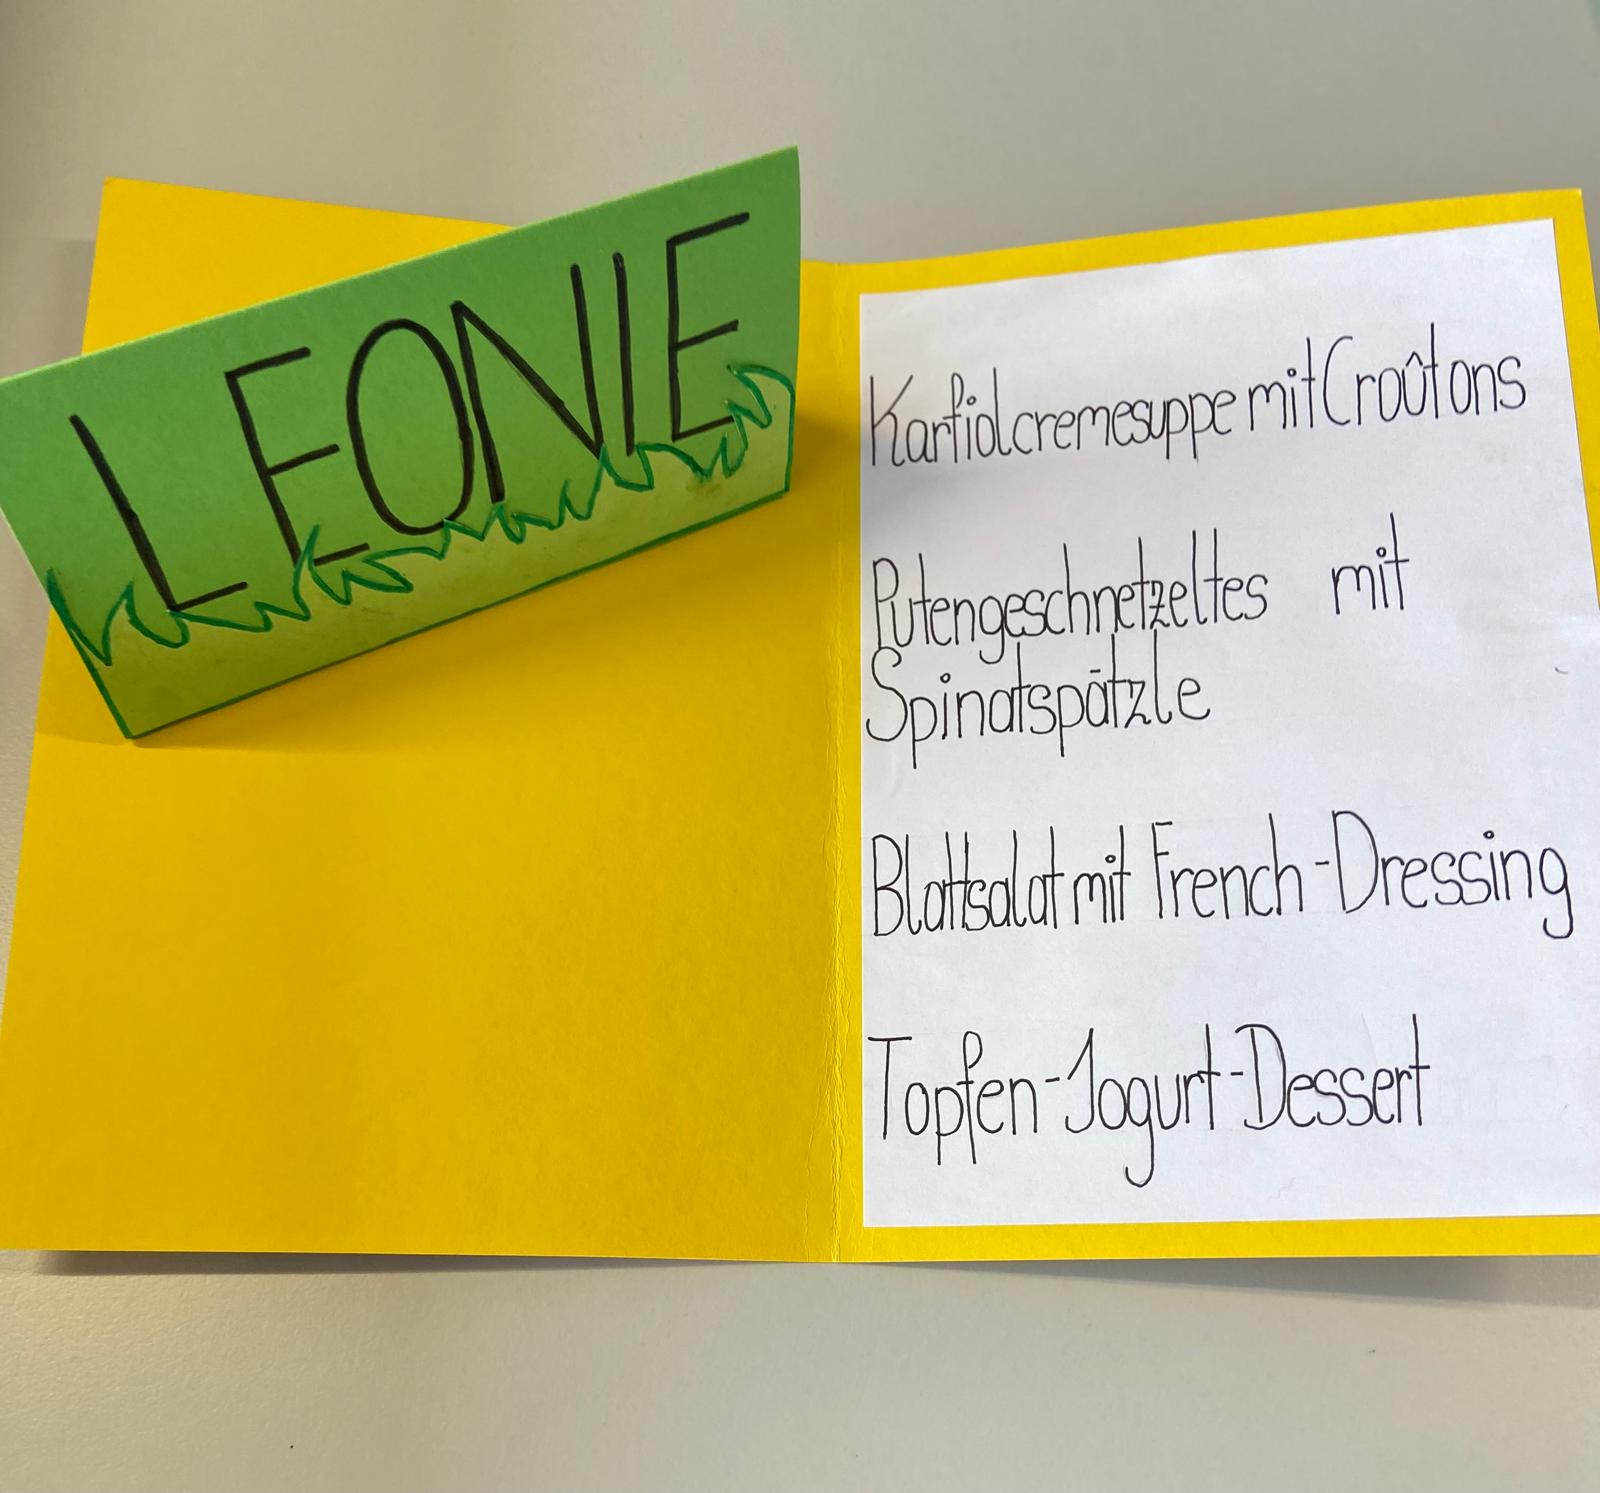 LEONIE
Karfiolcremesuppe mit Croûtons
Putengeschnetzeltes mit
Spinatspätzle
Blattsalat mit French-Dressing
Topfen-Jogurt-Dessert